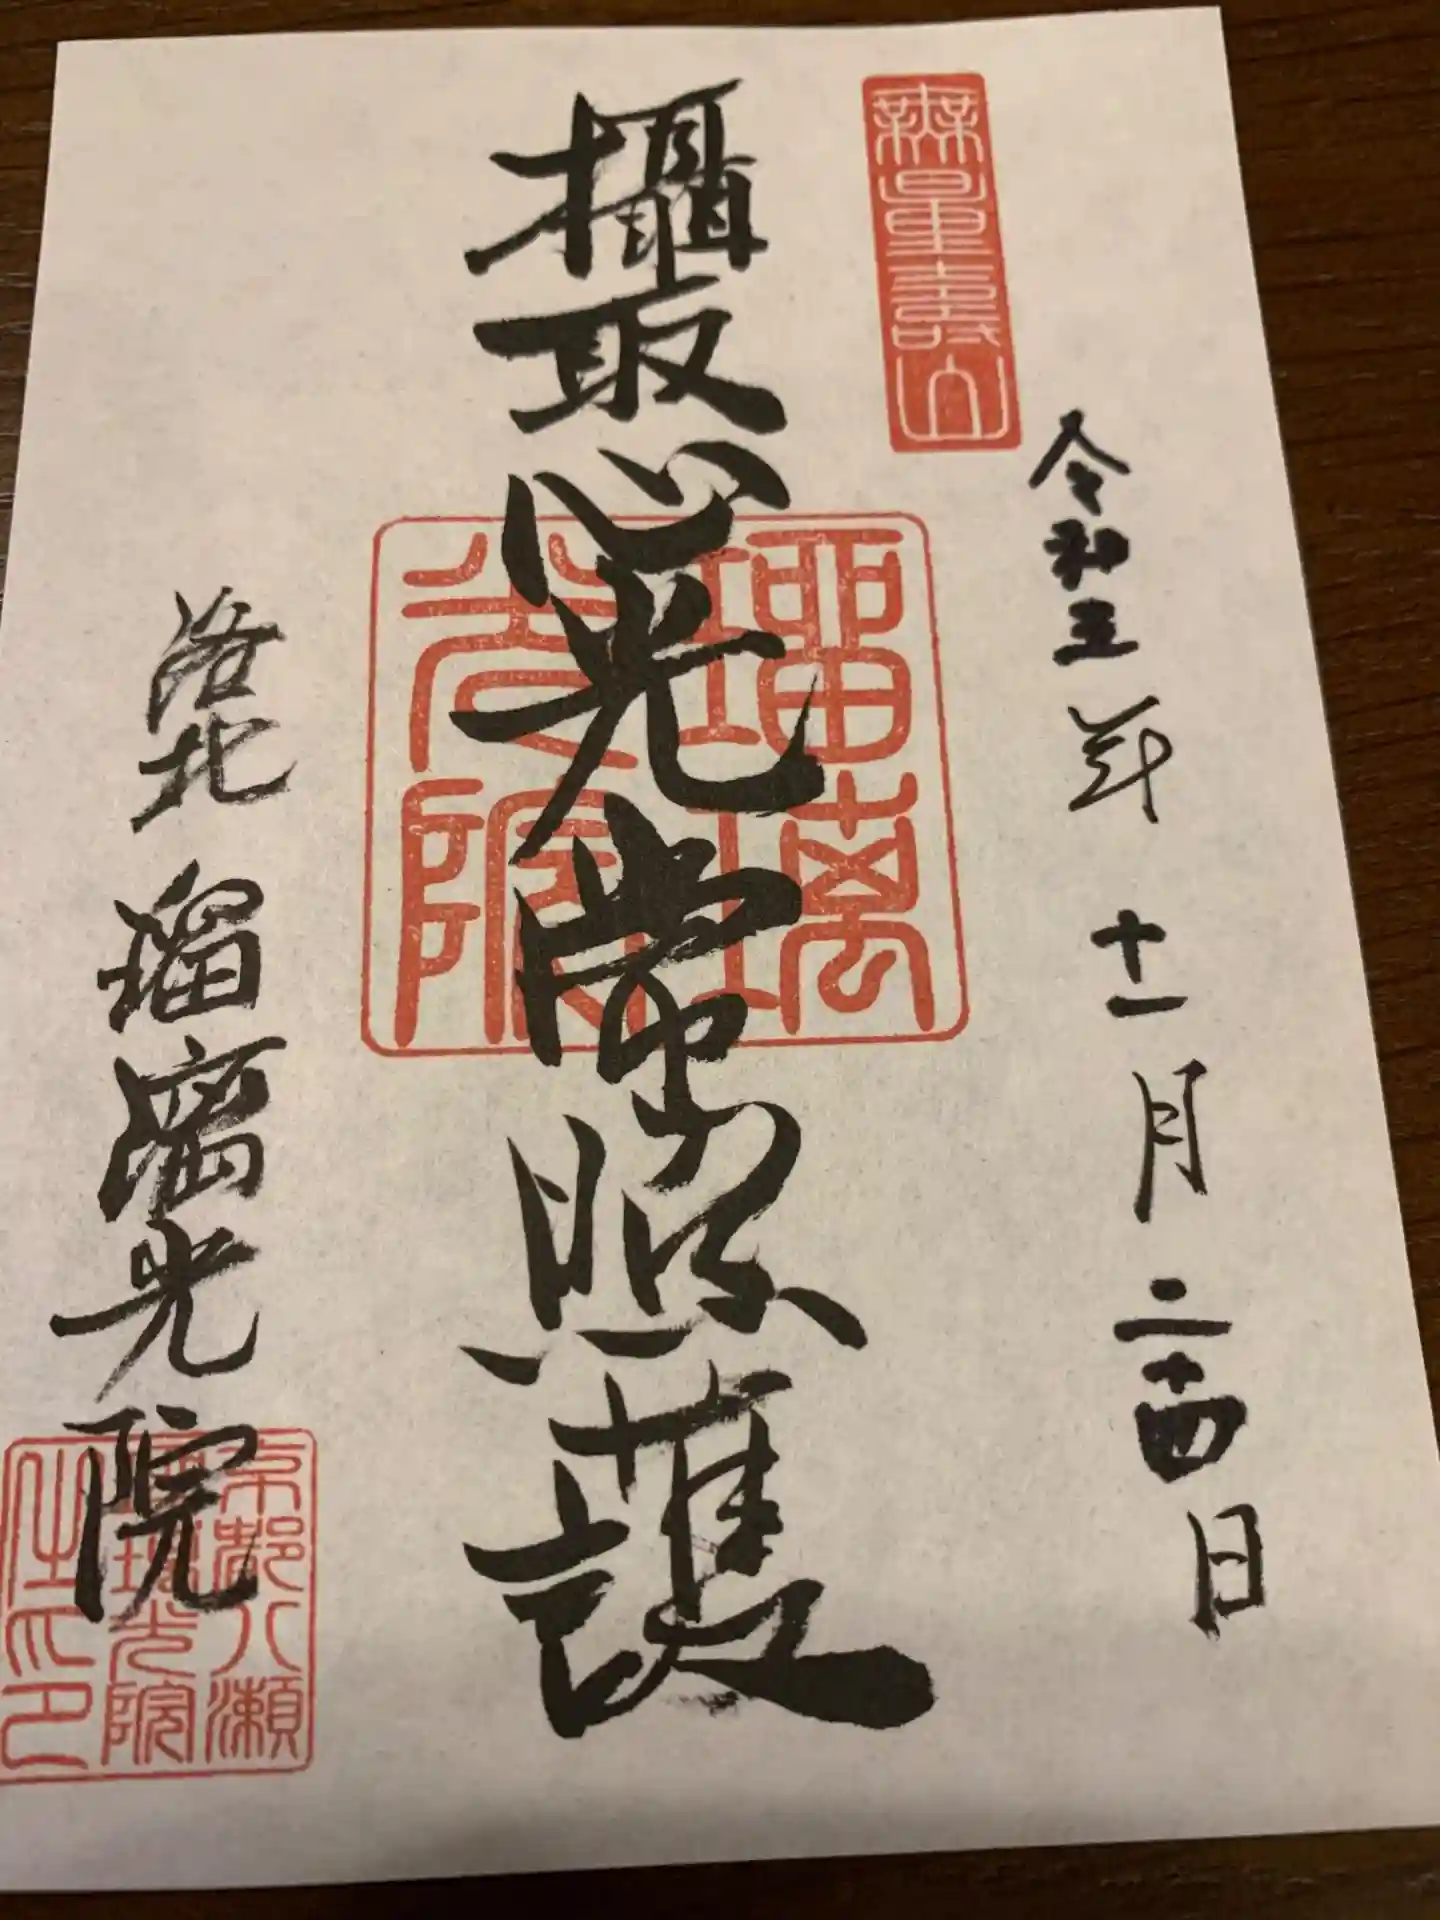 無量壽山
令和五年十一月二十四日
攝取心光常照護
瑠璃光院
洛北 瑠璃光院
京都八瀬瑠璃光院之印